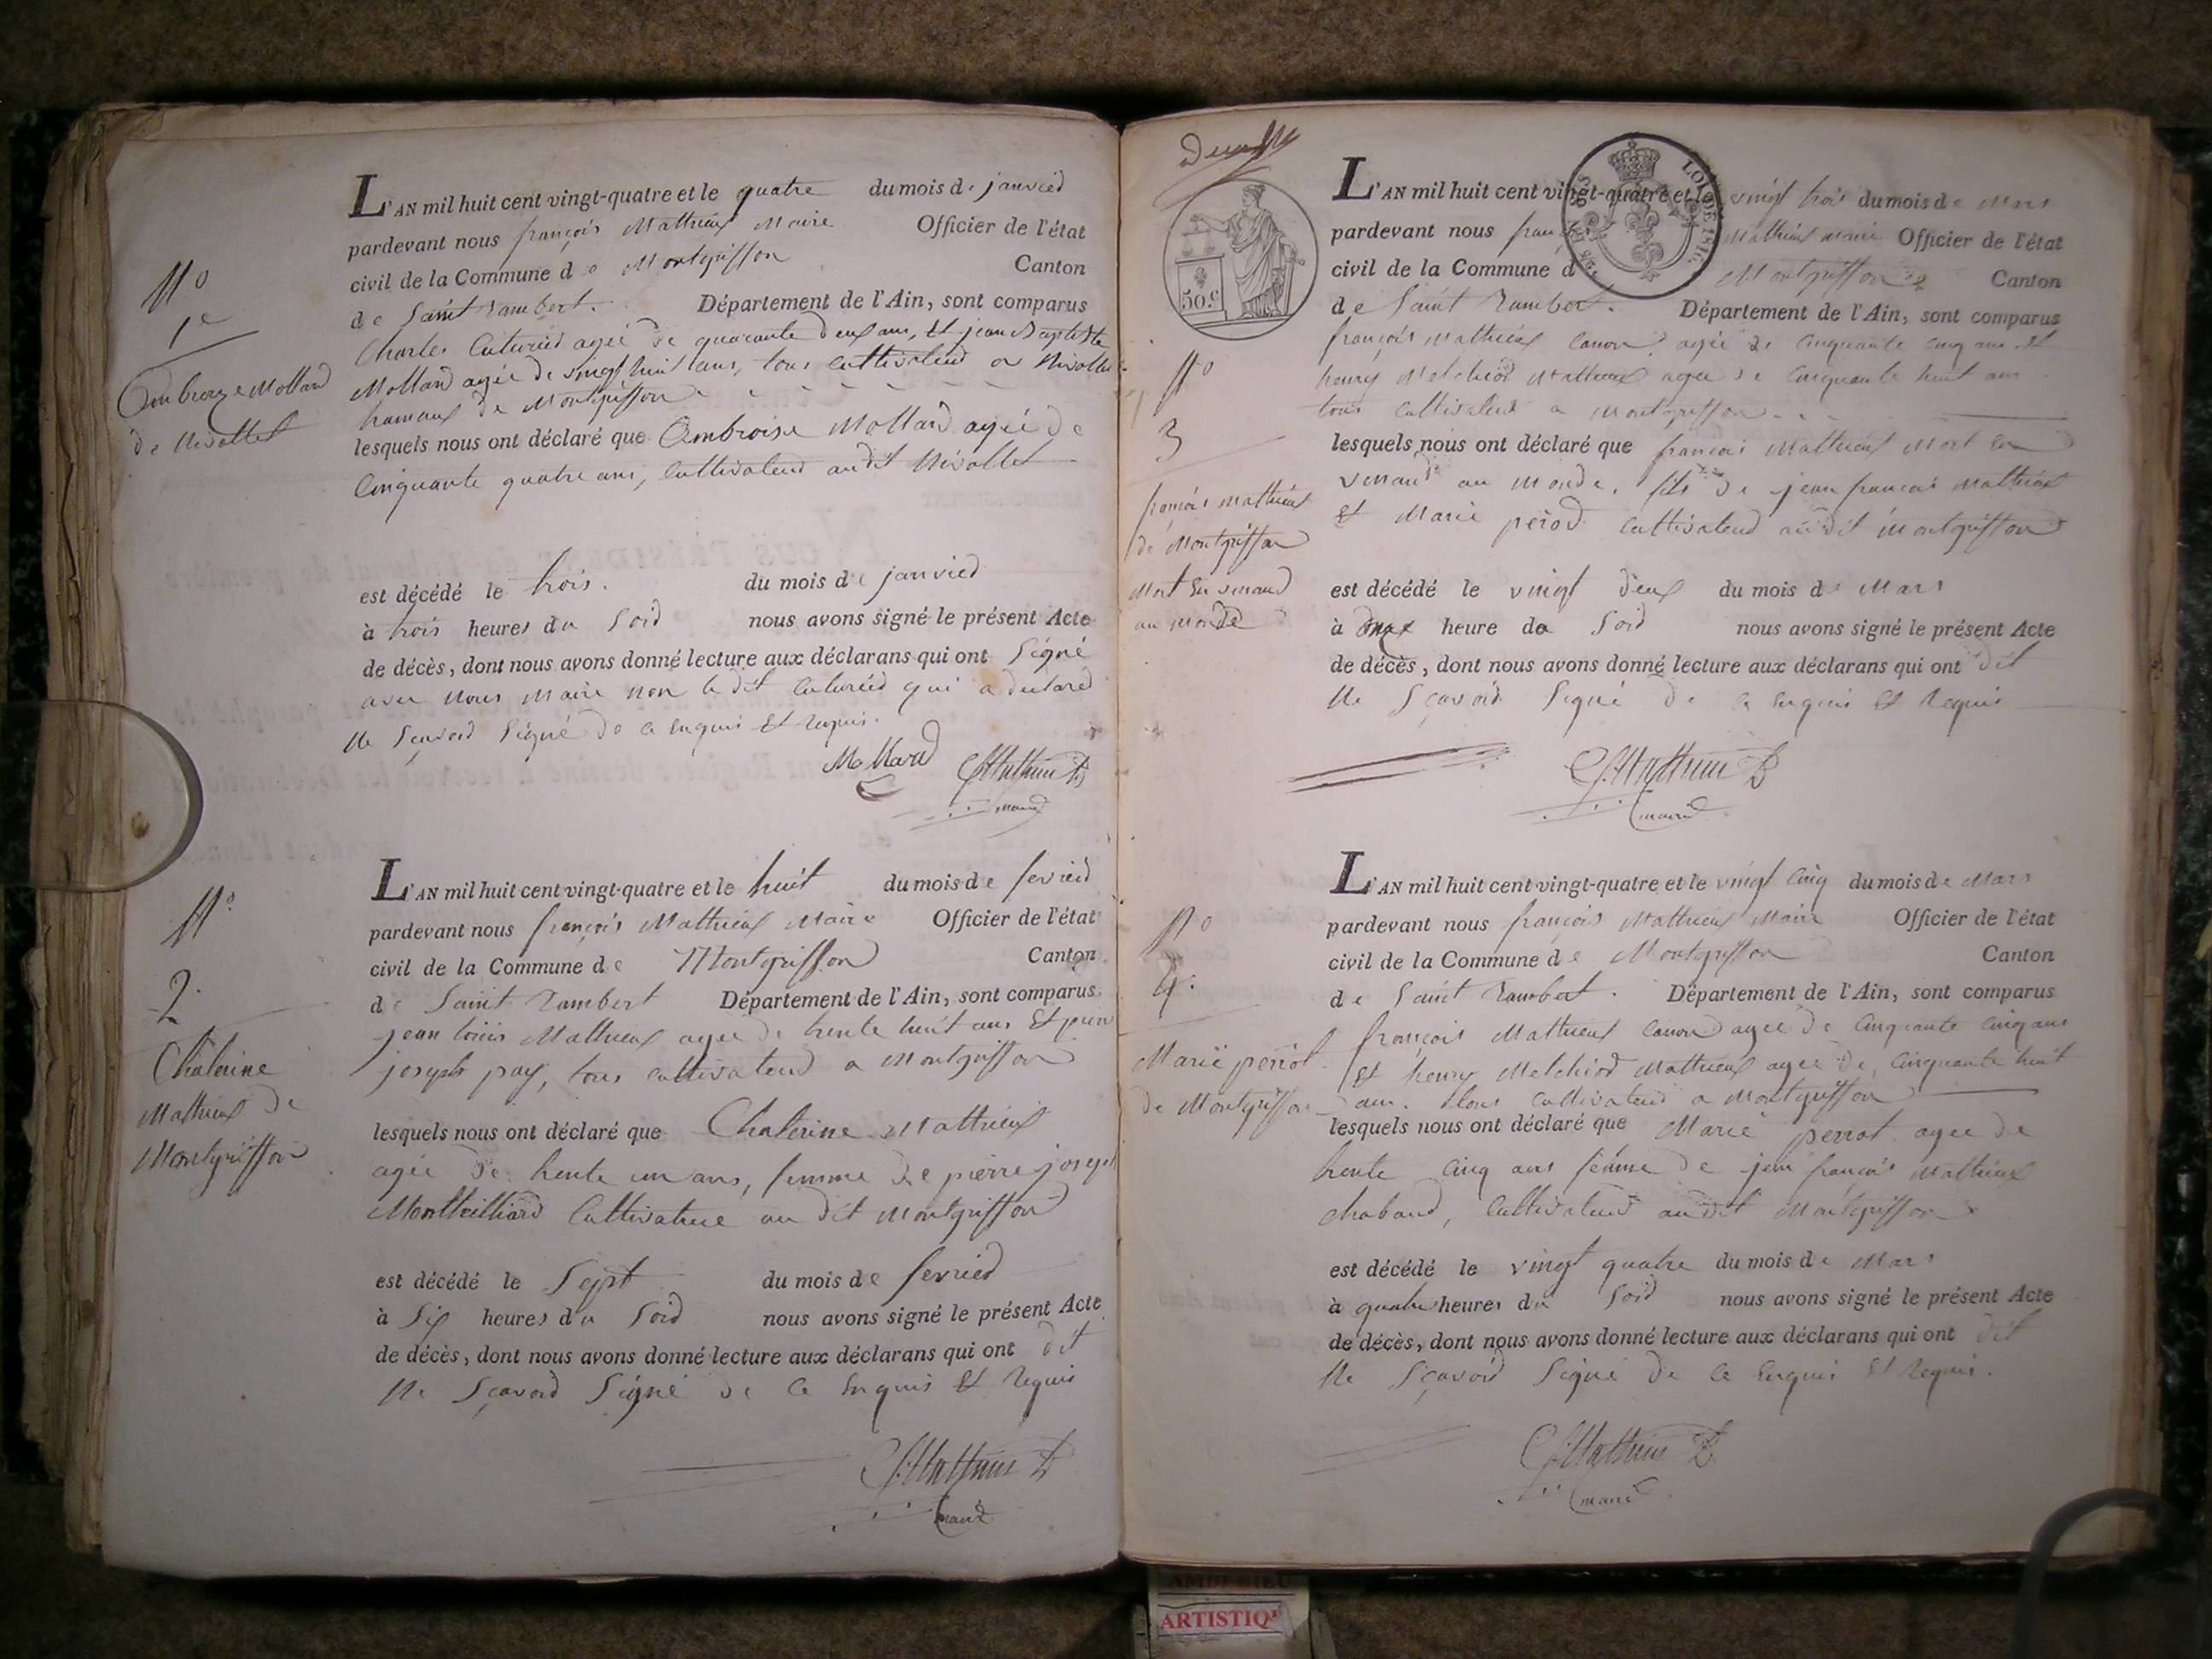 N°
1e
Ambroize Mollard
de Nivollet
L'AN mil huit cent vingt-quatre et le quatre du mois de janvier
pardevant nous françois Mathieux Maire Officier de l'état
civil de la Commune de Montgriffon Canton
de Saint Rambert. Département de l'Ain, sont comparus
Charles Cuturier agée de quarante deux ans, et jean Baptiste
Mollard agée de vingt huit ans, tous cultivateur a Nivollet
hamaux de Montgriffon
lesquels nous ont déclaré que Ambroise Mollard agée de
Cinquante quatre ans, Cultivateur audit Nivollet
est décédé le trois. du mois de janvier
à trois heures du Soir nous avons signé le présent Acte
de décès, dont nous avons donné lecture aux déclarans qui ont Signé
avec nous Maire non le dit Cuturier qui a declaré
Ne Sçavoir Signé de ce enquis et requis.
Mollard Mathieux
maire
N°
2.
Chaterine
Mathieux de
Montgriffon
L'AN mil huit cent vingt-quatre et le huit du mois de fevrier
pardevant nous françois Mathieux Maire Officier de l'état
civil de la Commune de Montgriffon Canton
de Saint Rambert Département de l'Ain, sont comparus
jean louis Mathieux agée de trente huit ans Et pierre
joseph pay, tous cultivateur a Montgriffon
lesquels nous ont déclaré que Chaterine Mathieux
agée de trente un ans, femme de pierre joseph
Montteilliard Cultivatrice au dit Montgriffon
est décédé le Sept du mois de fevrier
à Six heures du Soir nous avons signé le présent Acte
de décès, dont nous avons donné lecture aux déclarans qui ont dit
Ne Sçavoir Signé de ce enquis Et requis
Mathieux
maire
50.c
LOI DE 1816.
N°
3
françois Mathieux
de Montgriffon
Mort en venant
au monde
L'AN mil huit cent vingt-quatre et le vingt trois du mois de Mars
pardevant nous françois Mathieux Maire Officier de l'état
civil de la Commune de Montgriffon Canton
de Saint Rambert. Département de l'Ain, sont comparus
françois Mathieux Canon agée de Cinquante cinq ans et
henry Melchior Mathieux agée de Cinquante huit ans
tous Cultivateur a Montgriffon
lesquels nous ont déclaré que françois Mathieux Mort en
venant au Monde, fils de jean françois Mathieux
et Marie perod cultivateur audit Montgriffon
est décédé le vingt deux du mois de Mars
à onze heure du Soir nous avons signé le présent Acte
de décès, dont nous avons donné lecture aux déclarans qui ont dit
Ne Sçavoir Signé de ce enquis Et requis
Mathieux
maire
N°
4.
Marie perrot
de Montgriffon
L'AN mil huit cent vingt-quatre et le vingt Cinq du mois de Mars
pardevant nous françois Mathieux Maire Officier de l'état
civil de la Commune de Montgriffon Canton
de Saint Rambert. Département de l'Ain, sont comparus
françois Mathieux Canon agée de Cinquante Cinq ans
Et henry Melchior Mathieux agée de Cinquante huit
ans. tous Cultivateur a Montgriffon
lesquels nous ont déclaré que Marie perrot agee de
trente Cinq ans femme de jean françois Mathieux
chaband, Cultivateur audit Montgriffon
est décédé le vingt quatre du mois de Mars
à quatre heures du Soir nous avons signé le présent Acte
de décès, dont nous avons donné lecture aux déclarans qui ont dit
Ne Sçavoir Signé de ce enquis Et requis.
Mathieux
maire
ARTISTIQ